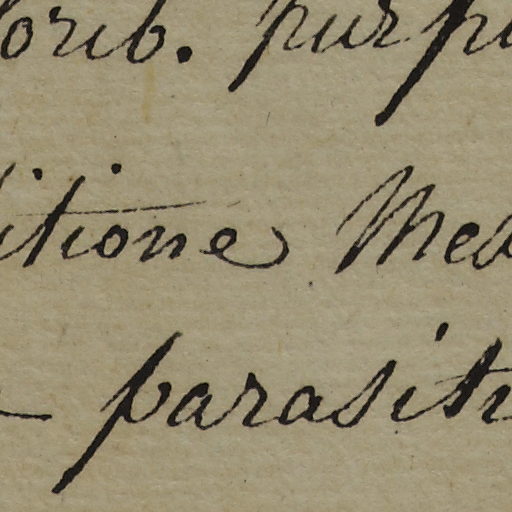 lorib. purpu
itione Mex
parasiti